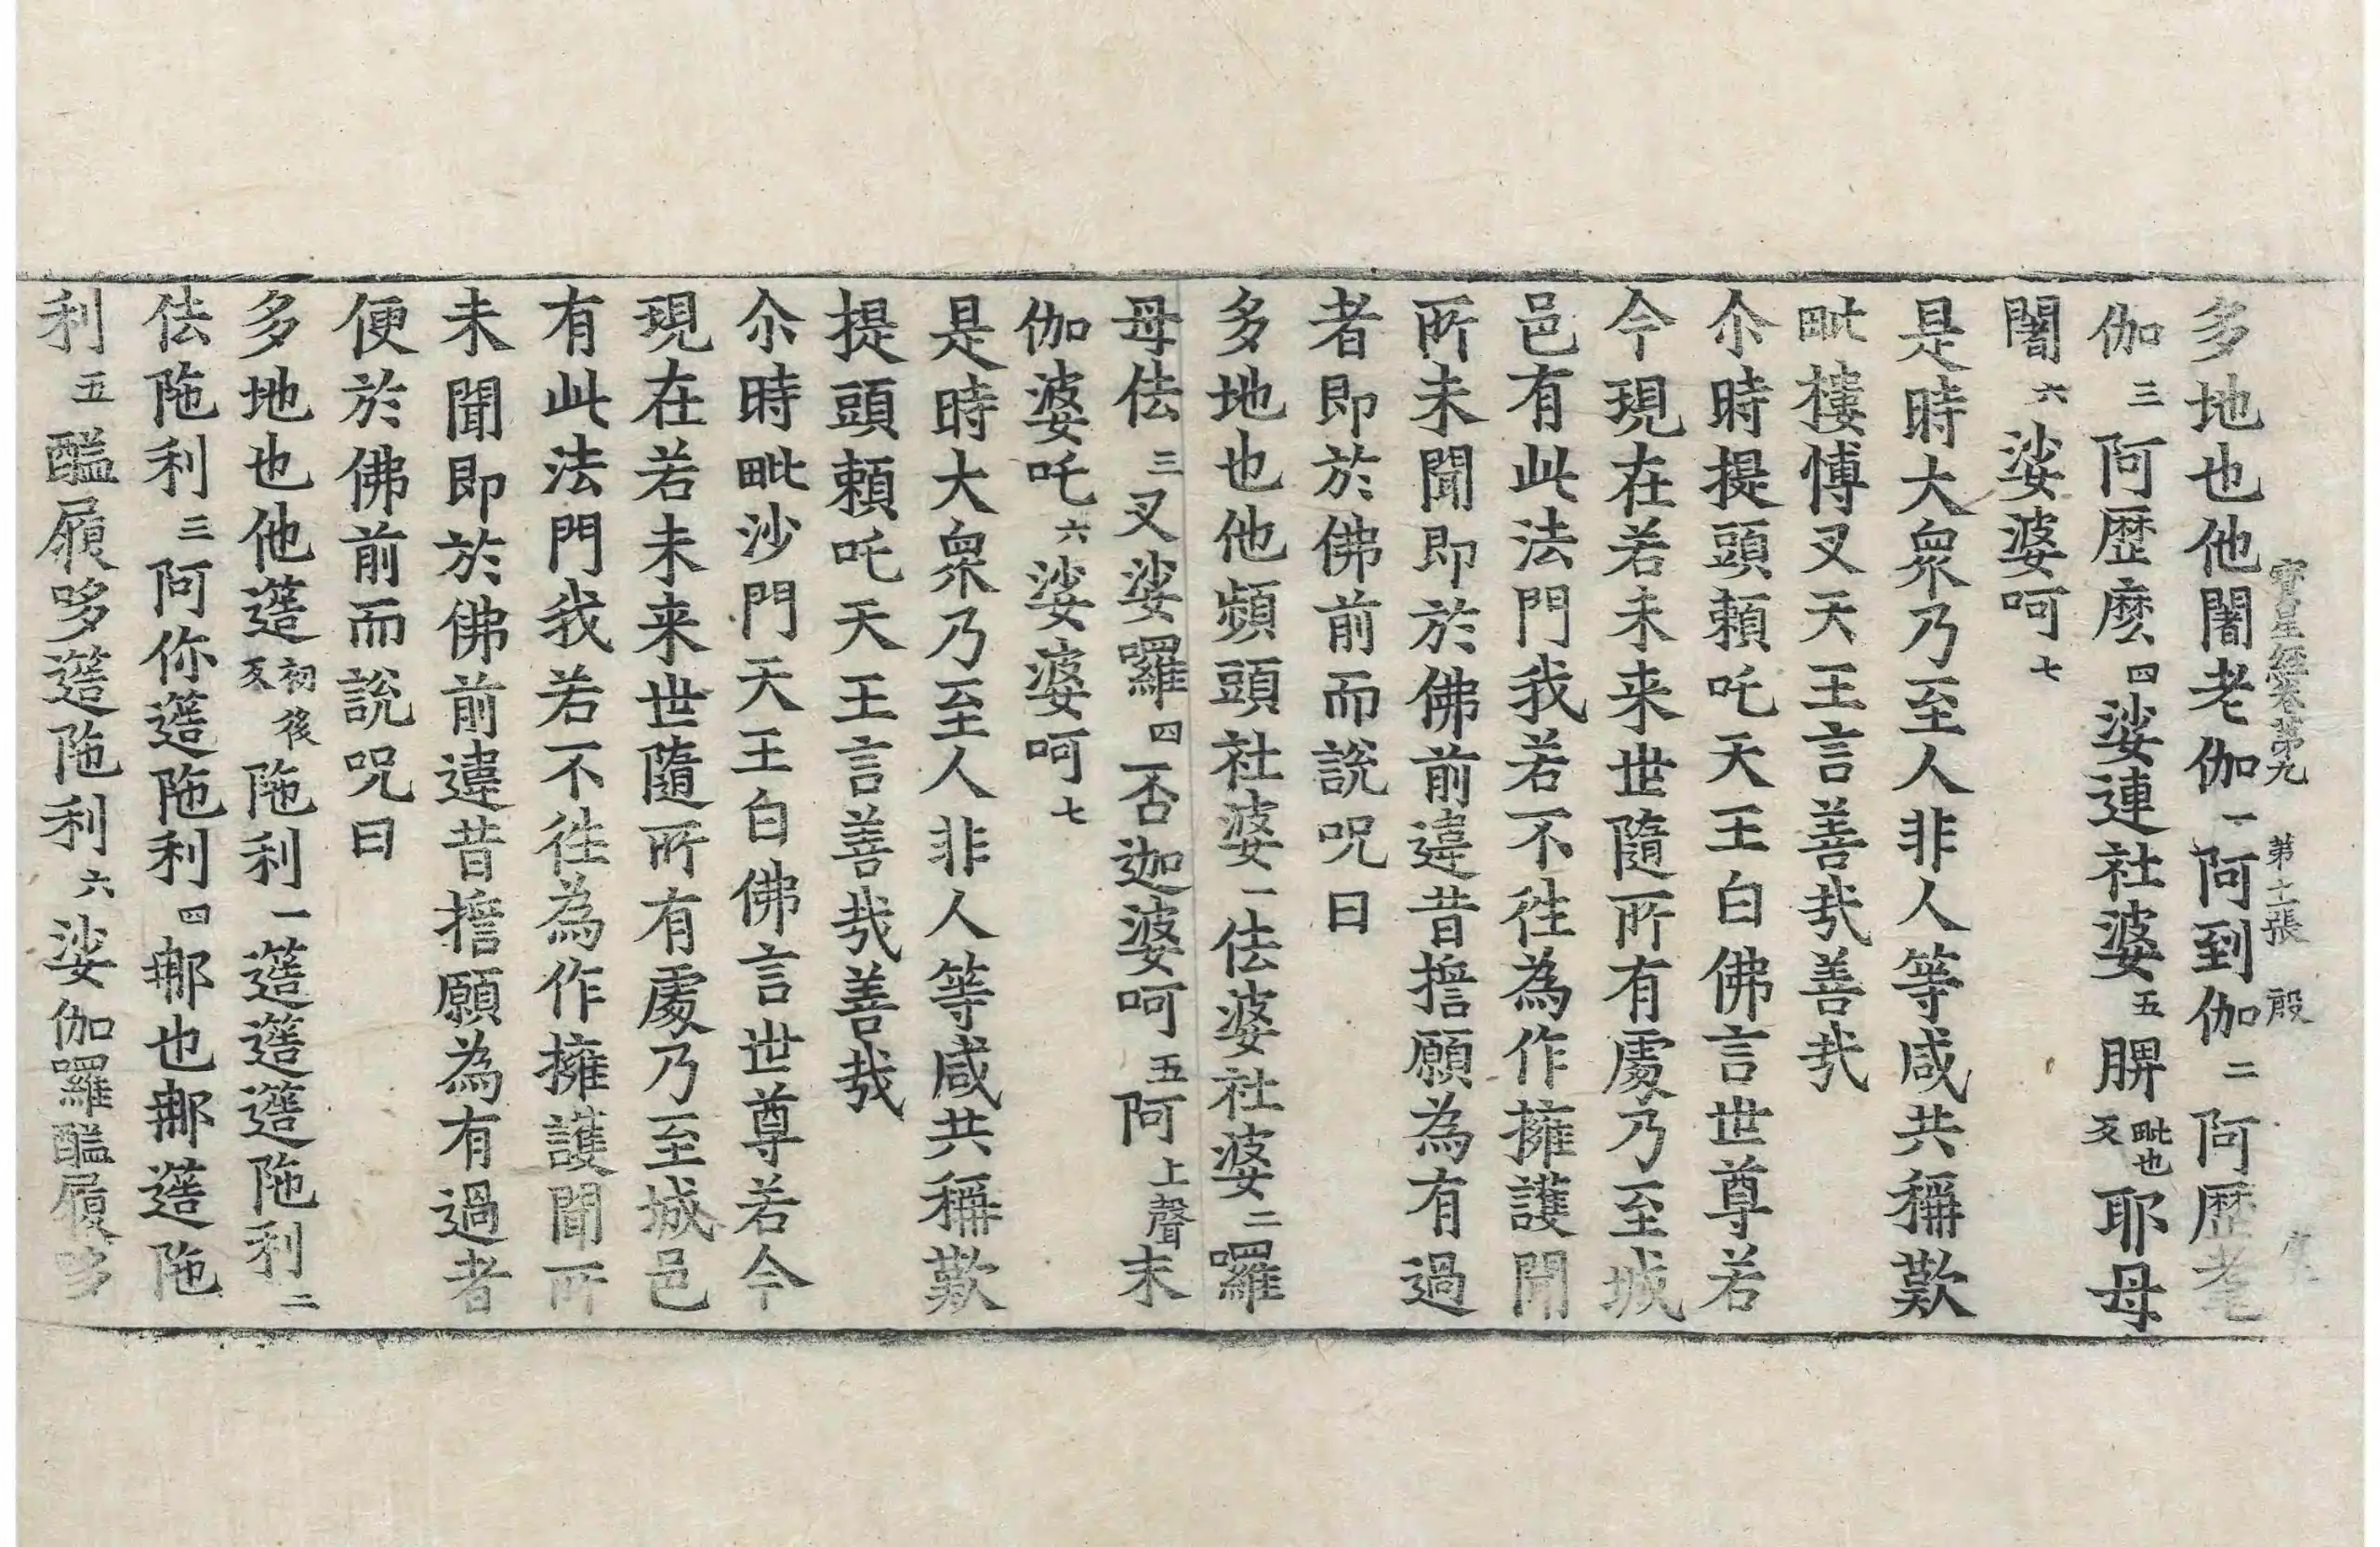 寶星經卷第九 第十二張 殷
多地也他闍老伽一阿到伽二阿歷老
伽三阿歷麽四娑連社婆五䏶毗也反耶母
闍六娑婆呵七
是時大衆乃至人非人等咸共稱歎
毗樓博叉天王言善㢤善㢤
尒時提頭賴吒天王白佛言世尊若
今現在若未来世隨所有處乃至城
邑有此法門我若不徃為作擁護聞
所未聞即於佛前違昔擔願為有過
者即於佛前而說呪曰
多地也他頻頭社婆一佉婆社婆二囉
母佉三叉娑囉四否迦婆呵五阿上聲末
伽婆吒六娑婆呵七
是時大衆乃至人非人等咸共稱歎
提頭賴吒天王言善㢤善㢤
尒時毗沙門天王白佛言世尊若今
現在若未来世隨所有處乃至城邑
有此法門我若不徃為作擁護聞所
未聞即於佛前違昔擔願為有過者
便於佛前而說呪曰
多地也他簉初後反陁利一簉簉簉陁利二
佉陁利三阿你簉陁利四那也那簉陁
利五醯履哆簉陁利六娑伽囉醯履哆